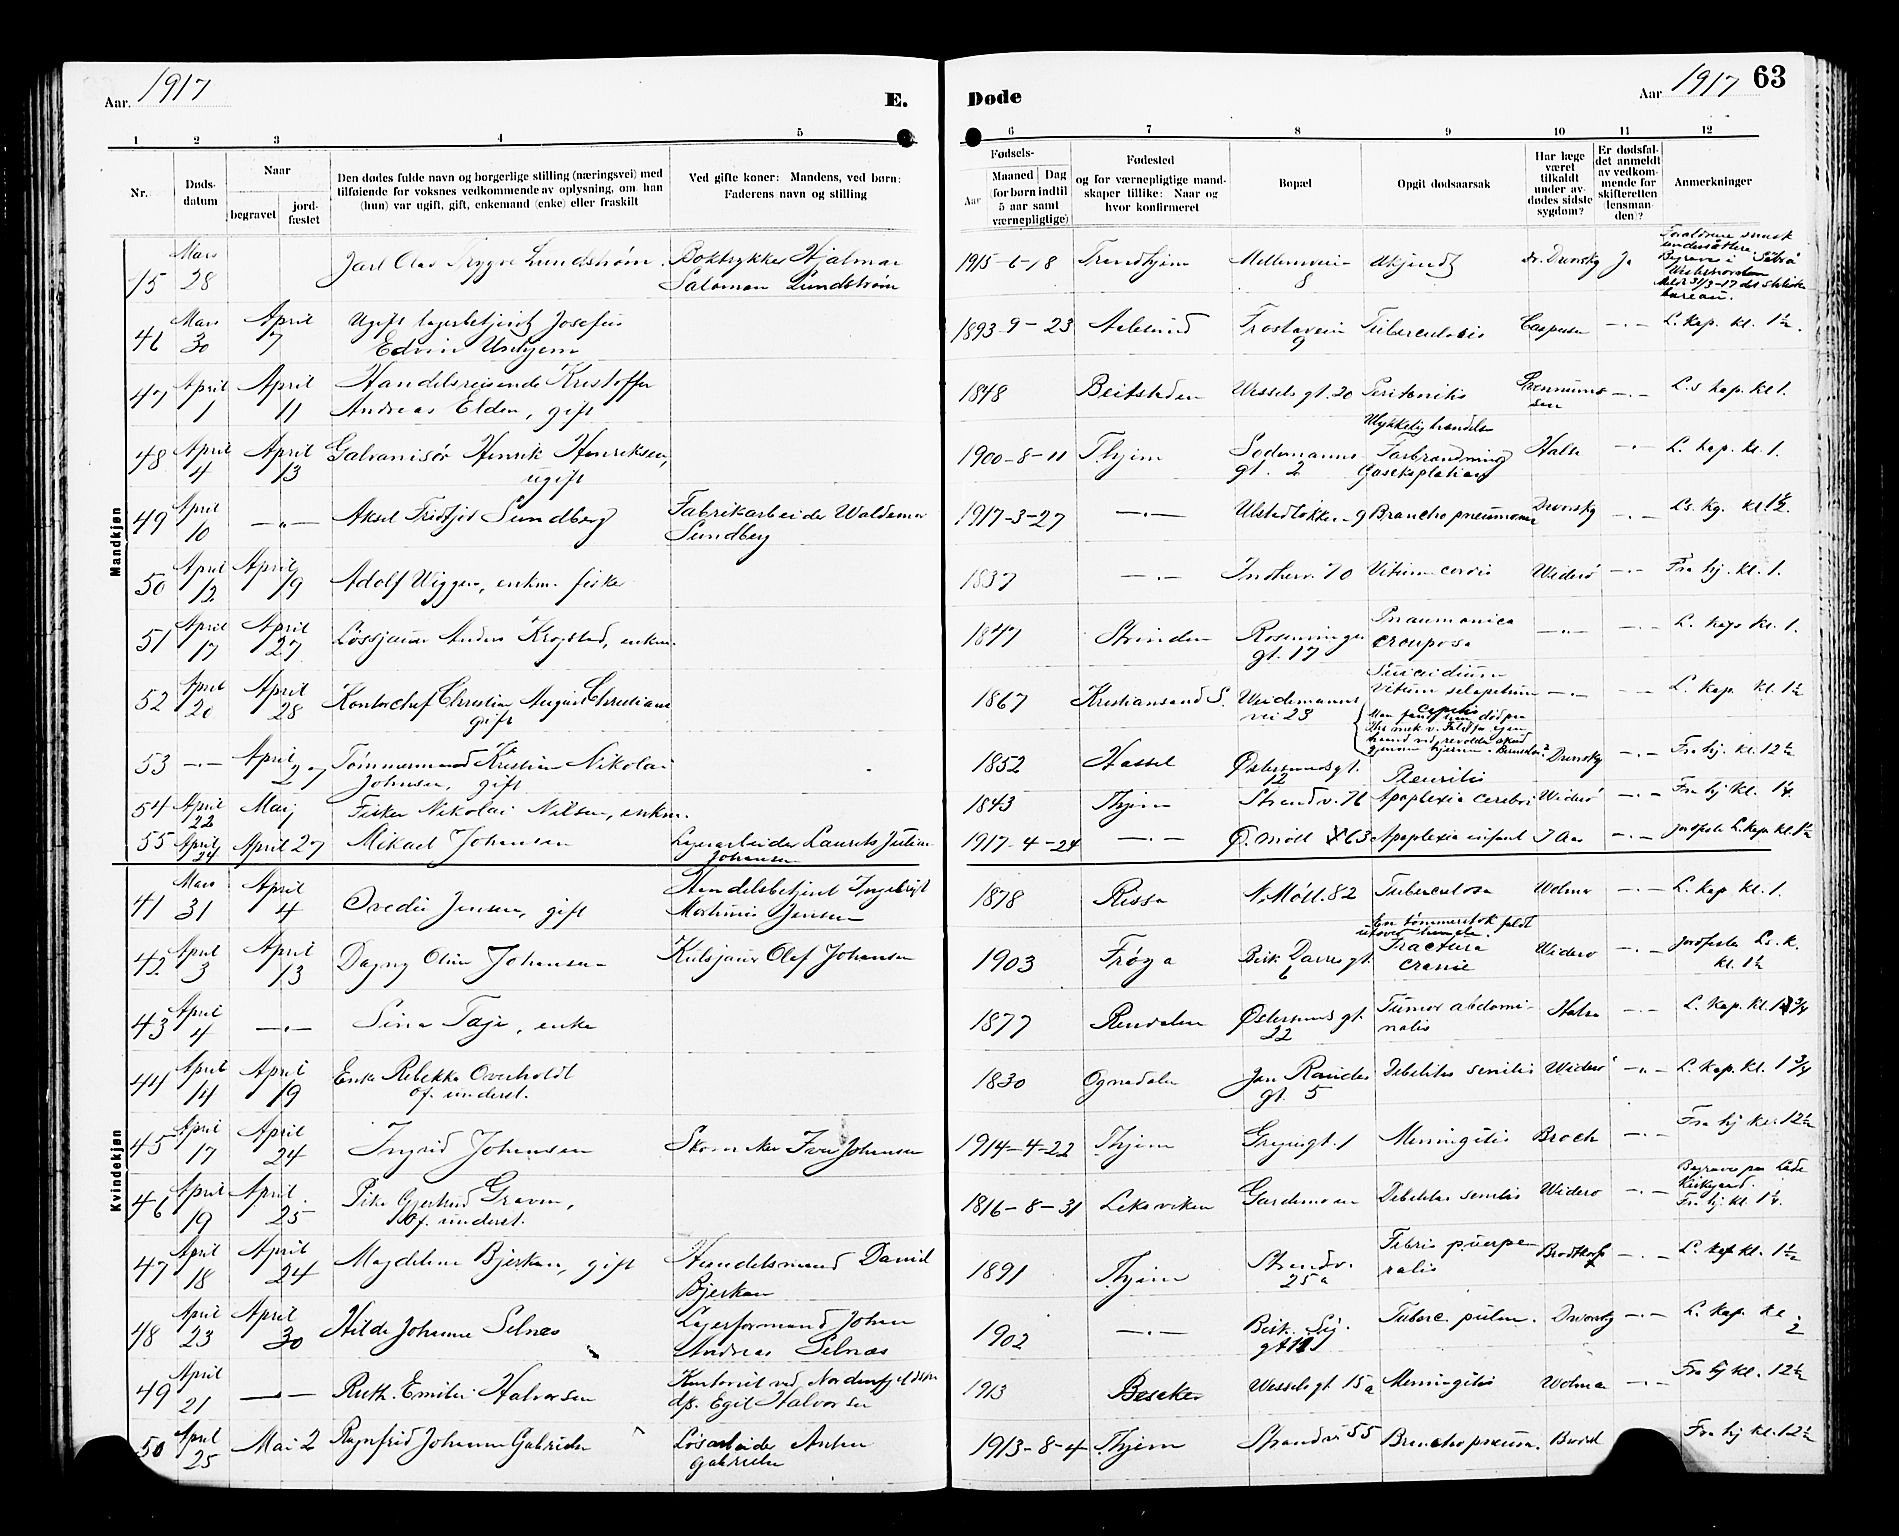 Aar. 1917
E.
Døde
Aar 1917
63
1 2 3 4 5 6 7 8 9 10 11 12
Nr.
Døds-
datum
Naar
begravet
jord-
fæstet
Den dødes fulde navn og borgerlige stilling (næringsvei) med
tilføiende for voksnes vedkommende av oplysning, om han
(hun) var ugift, gift, enkemand (enke) eller fraskilt
Ved gifte koner: Mandens, ved børn:
Faderens navn og stilling
Fødsels-
Aar
Maaned Dag
(for børn indtil
5 aar samt
værnepligtige)
Fødested
og for værnepligtige mand-
skaper tillike: Naar og
hvor konfirmeret
Bopæl
Opgit dødsaarsak
Har læge
været
tilkaldt
under av-
dødes sidste
sygdom?
Er dødsfal-
det anmeldt
av vedkom-
mende for
skifteretten
(lensman-
den)?
Anmerkninger
Mandkjøn
45 Mars 28 Jarl Olav Trygve Lundstrøm. Boktrykker Hjalmar
Salomon Lundstrøm 1915-6-18 Trondhjem Mellemveien 8 Ukjendt dr. Dvorsky Ja
46 Mars 30 April 7 Ugift lagerbetjent Josefus
Edvin 1893-9-23 Aalesund Frostaveien 9 Tuberculosis Caspersen -"- L. kap. kl. 1½.
47 April 1 April 11 Handelsreisende Kristoffer
Andreas Elden, gift 1848 Beitstaden Wessels gt. 20 Peritonitis -"- L.s kap. kl. 1.
48 April 4 April 13 Galvanisør Henrik Henriksen,
ugift 1900-8-11 Thjem gt. 2 Ulykkelig hændelse
Forbrænding
Gaseksplosion -"- L. kap. kl. 1.
49 April 10 -"- Aksel Fridtjof Sundberg Fabrikarbeider Waldemar
Sundberg 1917-3-27 -"- Ulstadløkken 9 Bronchopneumonia Dvorsky -"- Ls. kg. kl 1½.
50 April 12 April 19 Adolf Wiggen, enkm. fisker 1837 -"- Vitium cordis Widerø -"- Fra hj. kl. 1.
51 April 17 April 27 Løssjauer Anders Krogstad, enkm. 1847 Strinden
gt. 17 Pnaumonica
crouposa -"- -"- L. kap kl. 1.
52 April 20 April 28 Kontorchef Christian August Christians
gift 1867 Kristiansand S. Weidemanns
vei 23 Suicidium
-"- -"- L. kap kl. 1½
53 -"- April 27 Tømmermand Kristian Nikolai
Johnsen, gift 1852 Hassel Østersundsgt.
12 Pleuritis Dvorsky -"- Fra hj. kl. 12½
54 April 22 Maj Fisker Nikolai Nilsen, enkm. 1843 Thjem Strandv. 76 Apoplexia cerebri Widerø -"- Fra hj kl.
55 April 24 April 27 Mikael Johansen Lagerarbeider Laurits Justin
Johansen 1917-4-24 -"- Ø. Møll 63 Apoplexia infant J Aas -"- Jordfæstet L. kap. kl. 1½
Kvindekjøn
41 Mars 31 April 4 Ovedie Jensen, gift Handelsbetjent Ingebrigt
Martinus Jensen 1878 Rissa N. Møll. 82 Tuberculosa -"- L. kap kl. 1.
42 April 3 April 13 Dagny Oline Johansen Kulsjauer Olaf Johansen 1903 Frøya Bisk Darres gt.
6 En tømmerstok faldt
utover hende.
Fractura
cranie Widerø -"- Jordfæstet Ls. k.
kl. 1½
43 April 4 -"- Sina Taje, enke 1877 Rendalen Østersunds gt.
22 Tumor abdomi-
nalis -"- L. kap. kl. 1¾
44 April 14 April 19 Enke Rebekka Overholdt
Of. underst. 1830 Ognedalen Jon Raudes
gt. 5 Debilitas senilis Widerø -"- L. kap. kl. 1¾
45 April 17 April 24 Ingrid Johansen Skomaker Iver Johansen 1914-4-22 Thjem gt. 1 Meningitis Broch -"- Fra hj kl. 12½
46 April 19 April 25 Pike Gjertrud Graven,
Of. underst. 1816-8-31 Leksviken Gardemoen Debilitas senilis Widerø -"- Begraves paa Lade
Kirkegaard.
Fra hj. kl.
47 April 18 April 24 Magdelene Bjerkan, gift Handelsmand David
Bjerkan 1891 Thjem Strandv.
25a Febris puerpe
ralis Brodtkorb -"- L. kap kl. 1½
48 April 23 April 30 Hilda Johanne Selnæs Lagerformand Johan
Andreas Selnæs 1902 -"- Bisk. Sig.
gt 11 Tuberc. pulm. Dvorsky -"- L. kap. kl
2
49 April 21 -"- Ruth Emilie Halvorsen Kontorist ved Nordenfjeldske
dps. Egil Halvorsen 1913 Wessels gt 15a Meningitis -"- Fra hj kl. 12½
50 April 25 Mai 2 Ragnfrid Johanne Gabrielsen Løsarbeider Anton
Gabrielsen 1913-8-4 Thjem Strandv 55 Bronchopneum. Fra hj kl. 12½